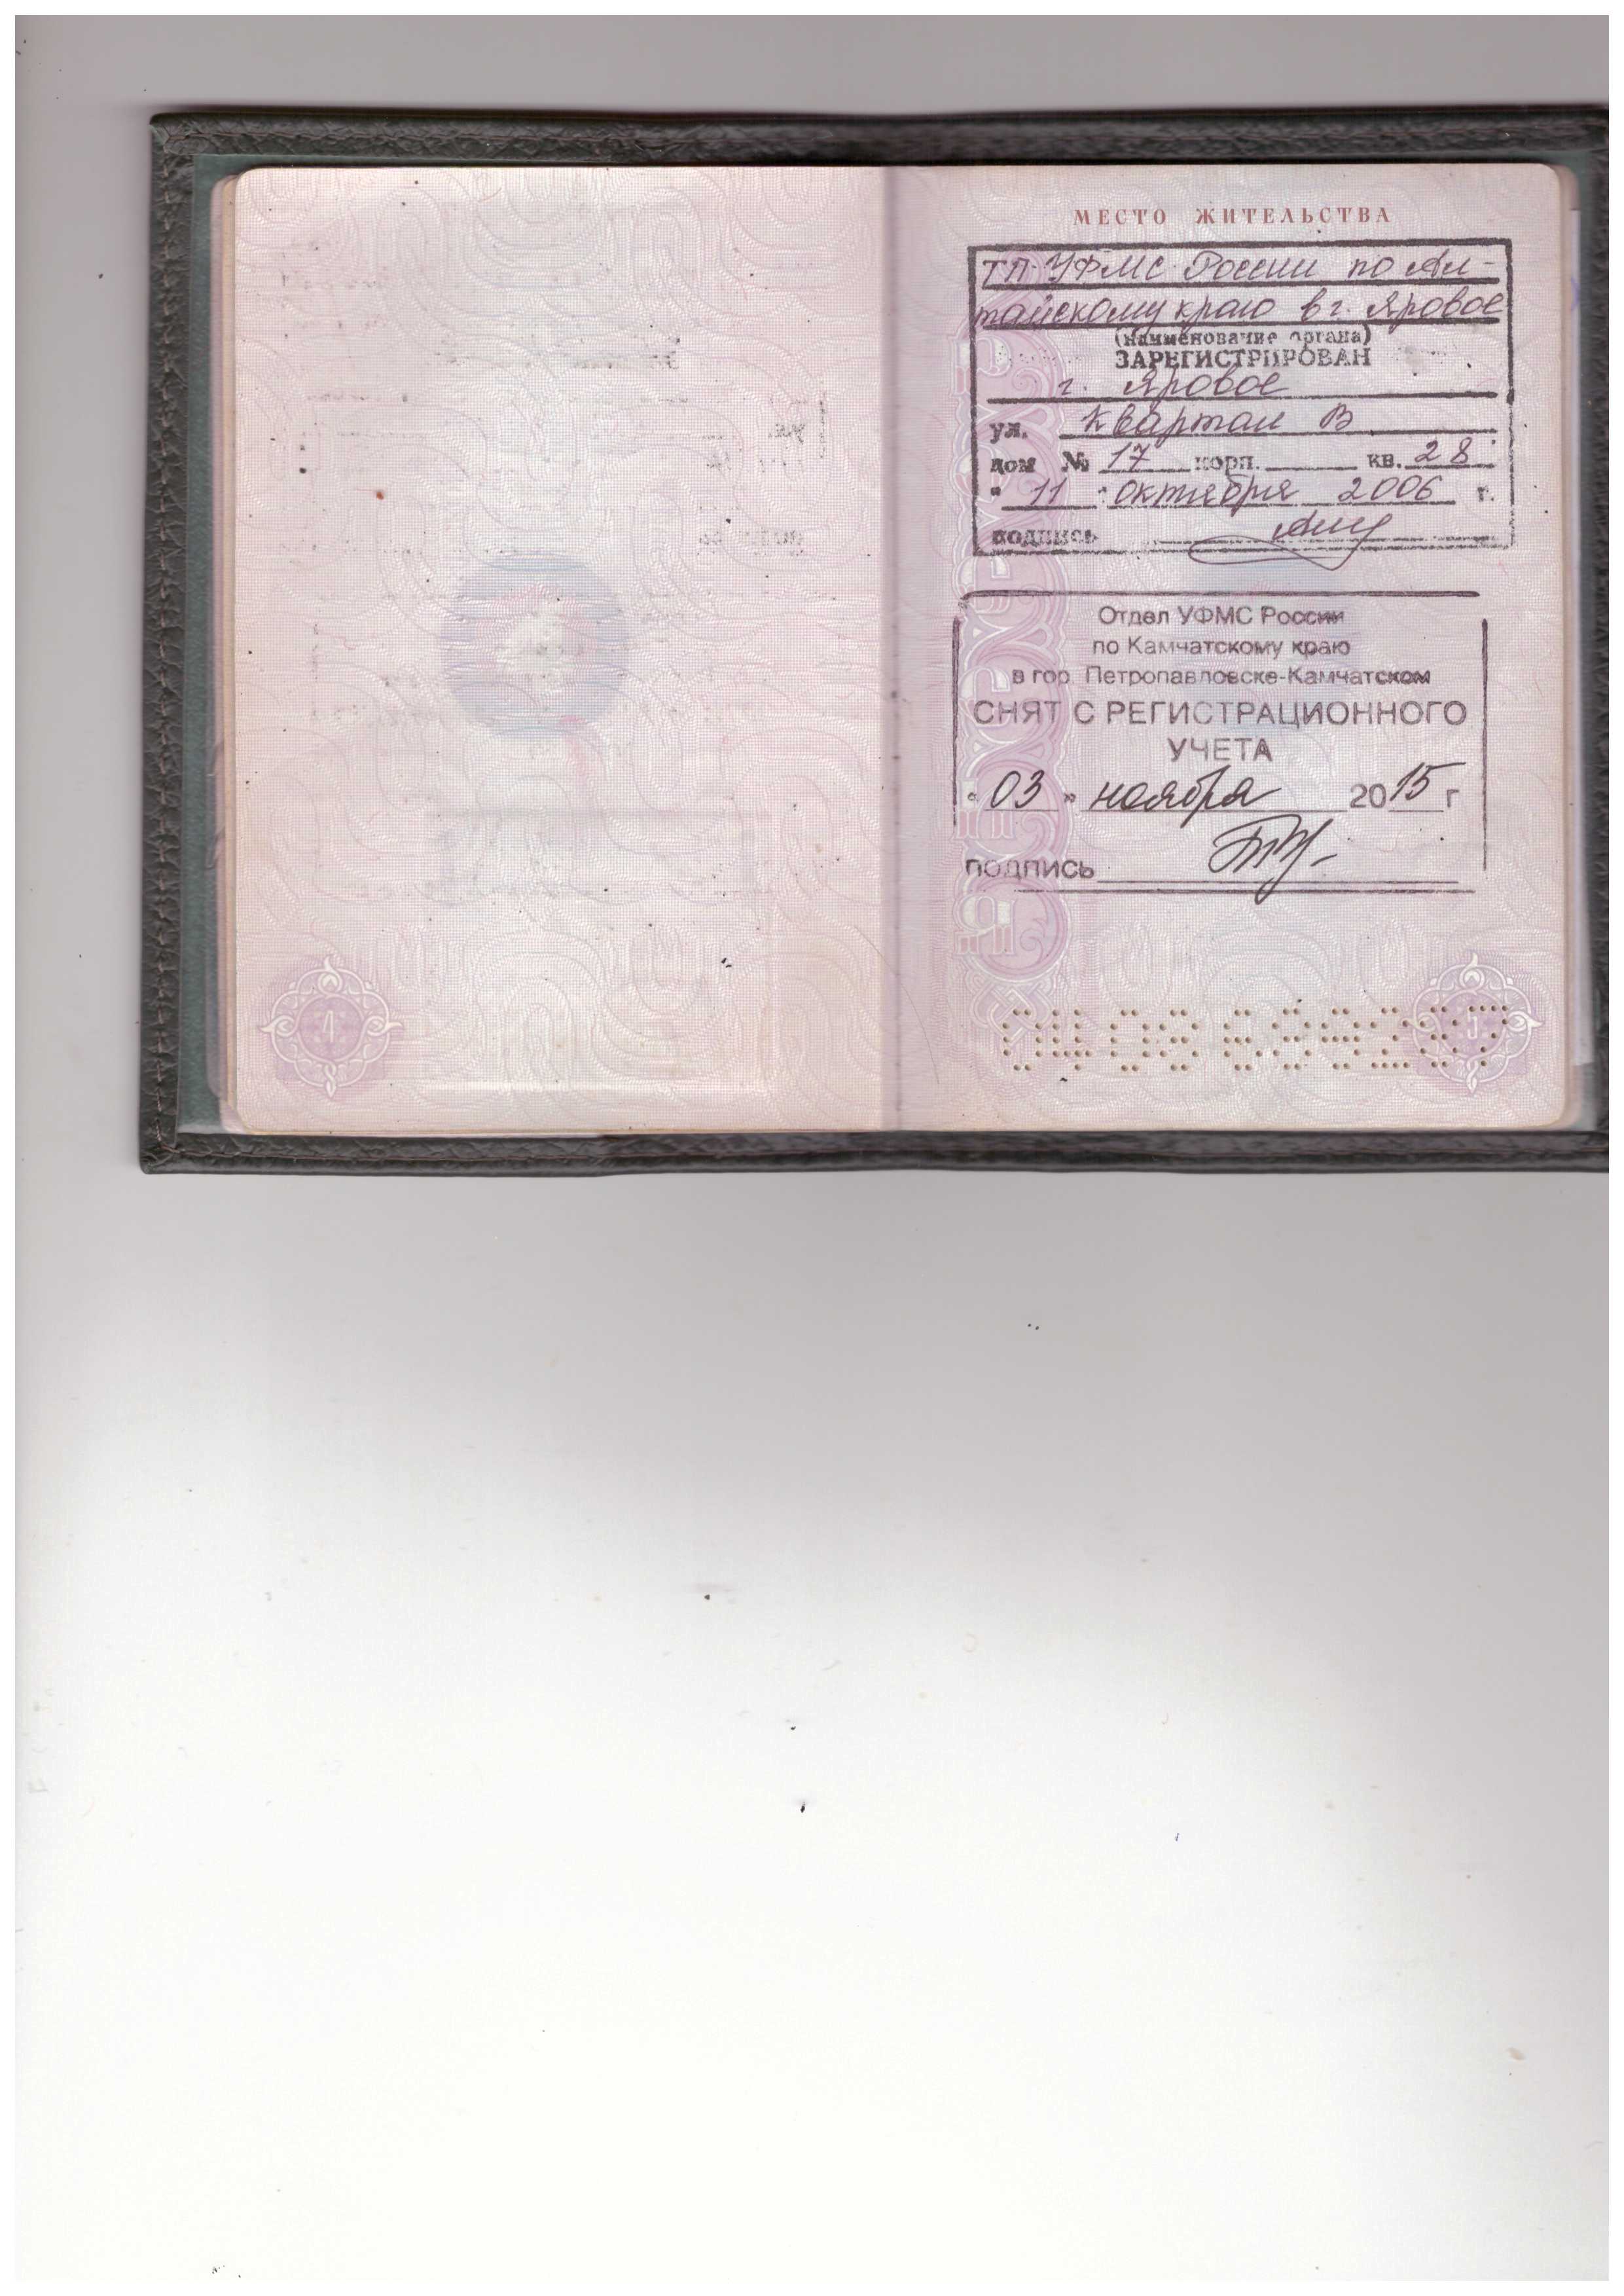 МЕСТО ЖИТЕЛЬСТВА
ТП УФМС России по Ал-
тайскому краю в г. Яровое
(наименование органа)
ЗАРЕГИСТРИРОВАН
г. Яровое
ул. Квартал В
дом № 17 корп. кв. 28
" 11 " октября 2006 г.
подпись
Отдел УФМС России
по Камчатскому краю
в гор. Петропавловске-Камчатском
СНЯТ С РЕГИСТРАЦИОННОГО
УЧЕТА
" 03 " ноября 2015 г
подпись
04 08
4
5